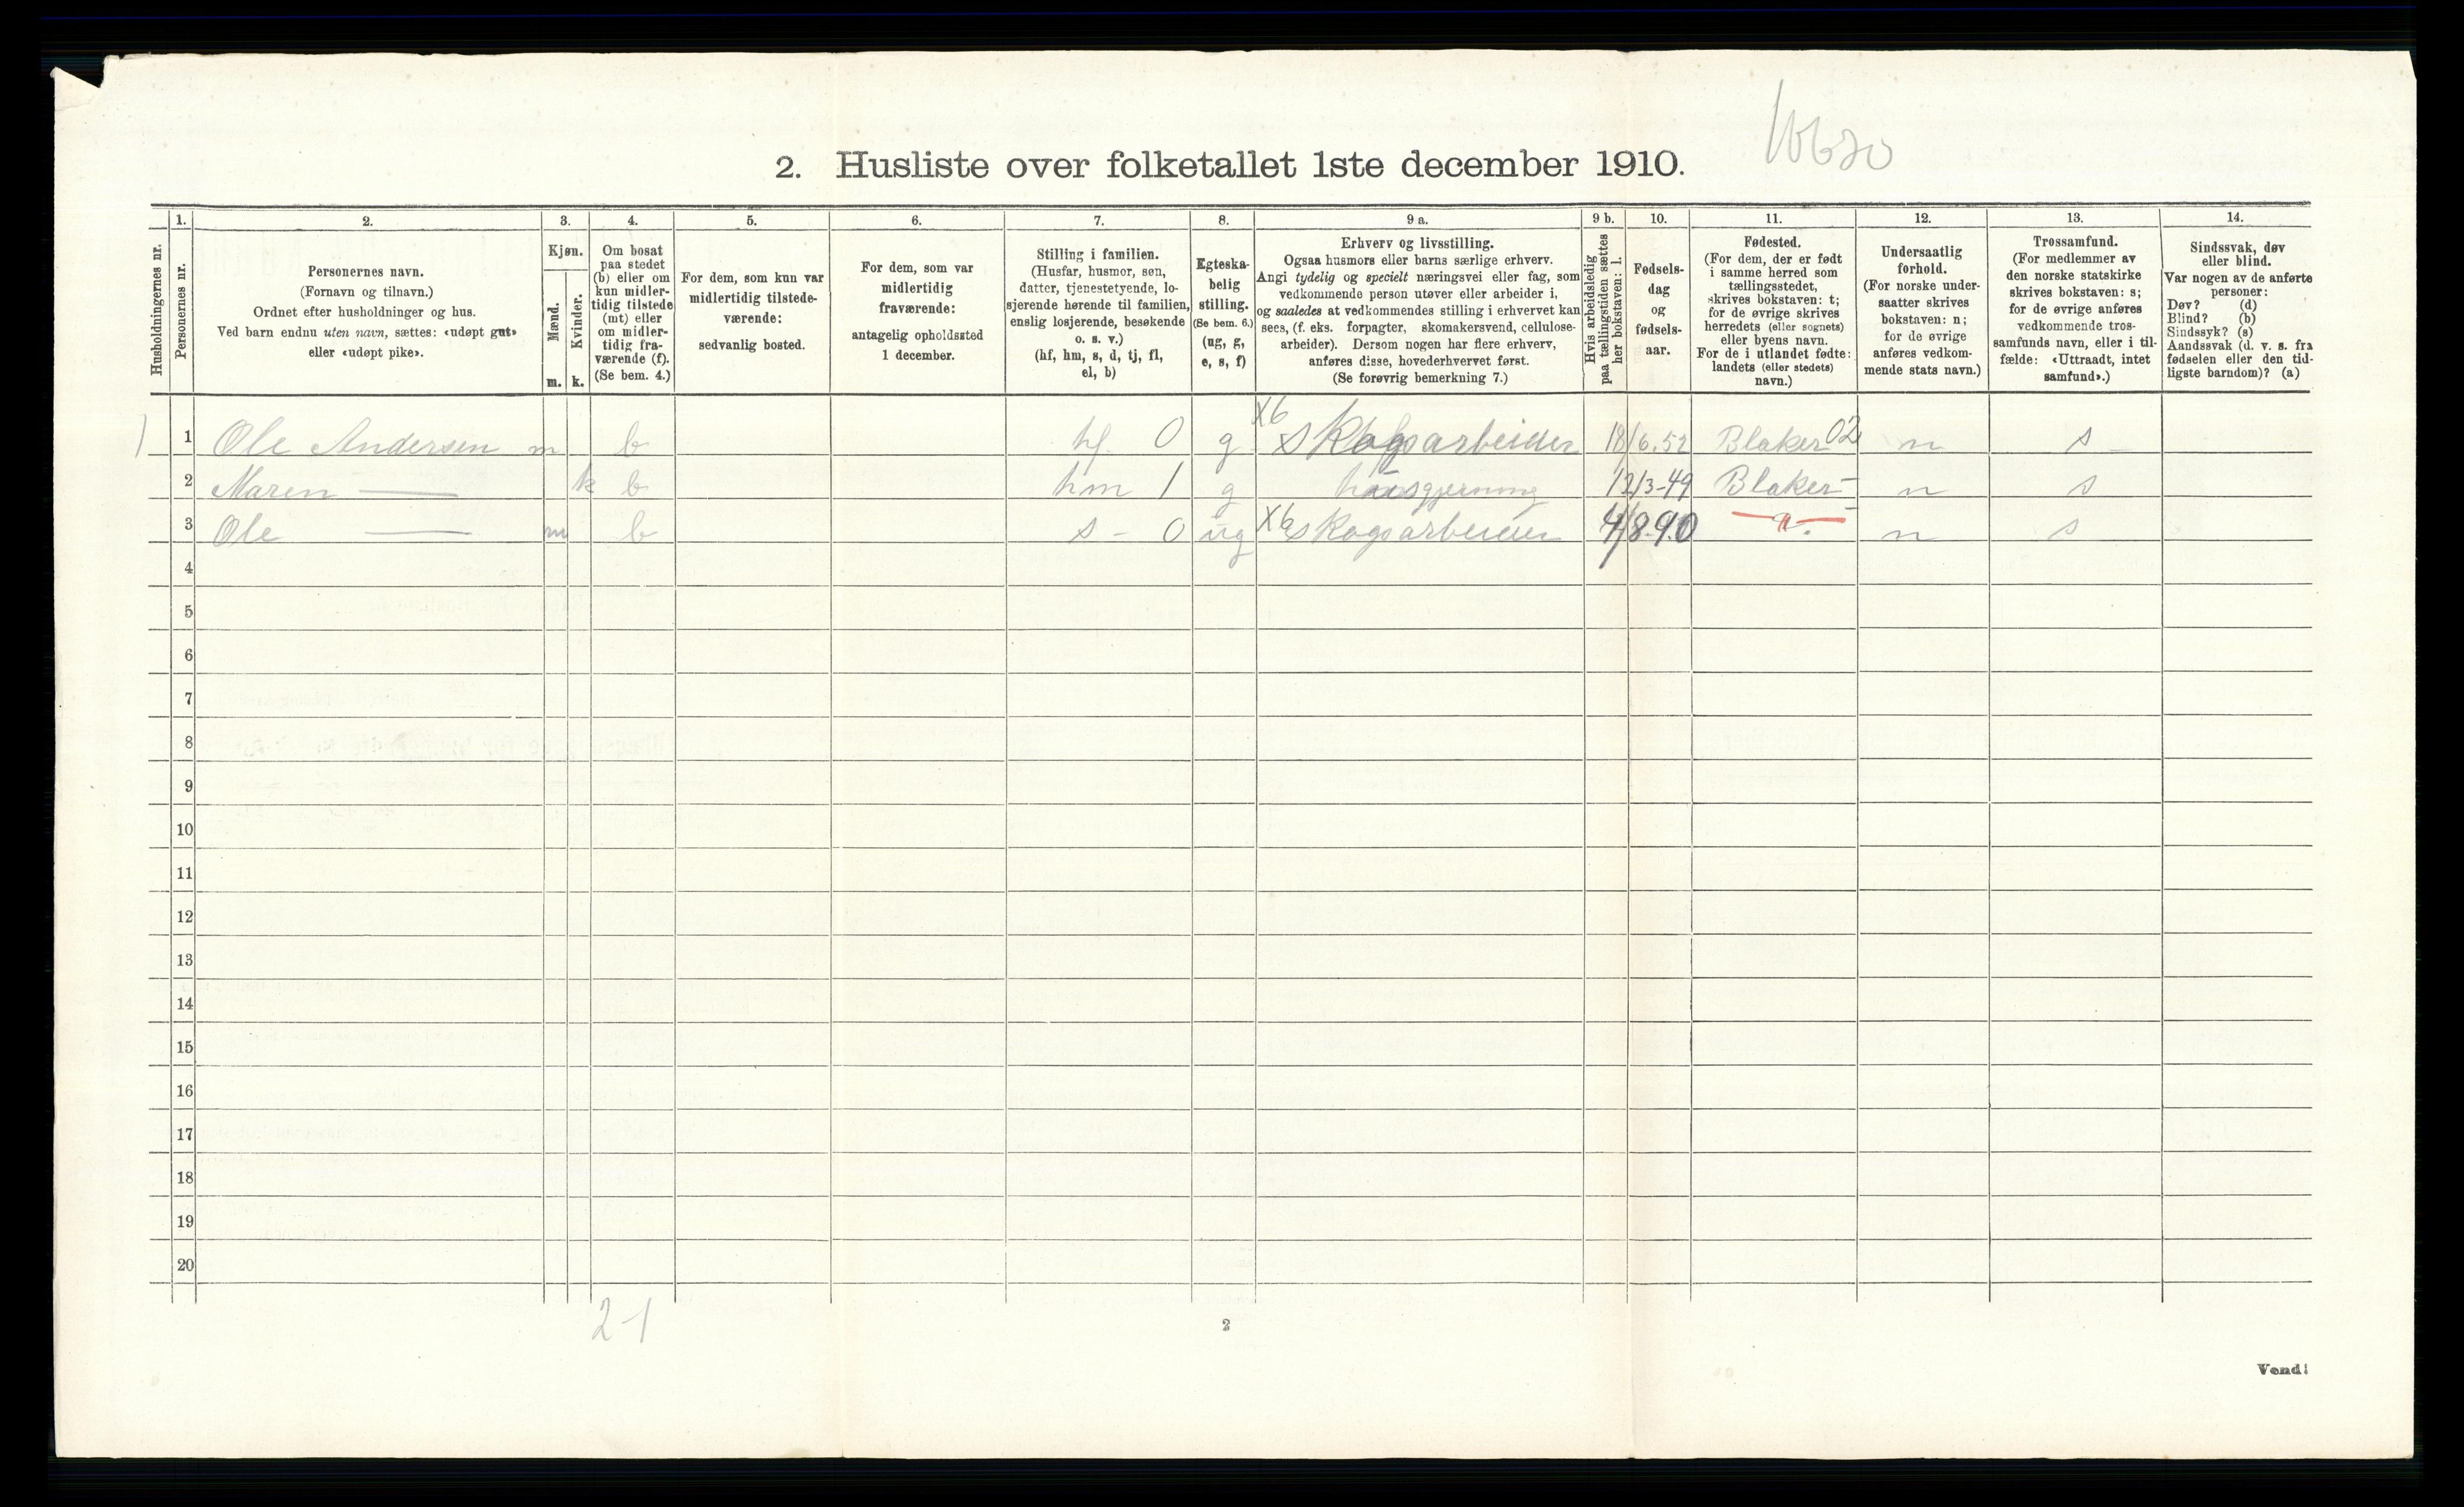 10630
2. Husliste over folketallet 1ste december 1910.
Husholdningernes nr.
1.
Personernes nr.
2.
Personernes navn.
(Fornavn og tilnavn.)
Ordnet efter husholdninger og hus.
Ved barn endnu uten navn, sættes: «udøpt gut»
eller «udøpt pike».
3.
Kjøn.
Mænd.
Kvinder.
m. k.
4.
Om bosat
paa stedet
(b) eller om
kun midler-
tidig tilstede
(mt) eller
om midler-
tidig fra-
værende (f).
(Se bem. 4.)
5.
For dem, som kun var
midlertidig tilstede-
værende:
sedvanlig bosted.
6.
For dem, som var
midlertidig
fraværende:
antagelig opholdssted
1 december.
7.
Stilling i familien.
(Husfar, husmor, søn,
datter, tjenestetyende, lo-
sjerende hørende til familien,
enslig losjerende, besøkende
o. s. v.)
(hf, hm, s, d, tj, fl,
el, b)
8.
Egteska-
belig
stilling.
(Se bem. 6.)
(ug, g,
e, s, f)
9 a.
Erhverv og livsstilling.
Ogsaa husmors eller barns særlige erhverv.
Angi tydelig og specielt næringsvei eller fag, som
vedkommende person utøver eller arbeider i,
og saaledes at vedkommendes stilling i erhvervet kan
sees, (f. eks. forpagter, skomakersvend, cellulose-
arbeider). Dersom nogen har flere erhverv,
anføres disse, hovederhvervet først.
(Se forøvrig bemerkning 7.)
9 b.
Hvis arbeidsledig
paa tællingstiden sættes
her bokstaven: l.
10.
Fødsels-
dag
og
fødsels-
aar.
11.
Fødested.
(For dem, der er født
i samme herred som
tællingsstedet,
skrives bokstaven: t;
for de øvrige skrives
herredets (eller sognets)
eller byens navn.
For de i utlandet fødte:
landets (eller stedets)
navn.)
12.
Undersaatlig
forhold.
(For norske under-
saatter skrives
bokstaven: n;
for de øvrige
anføres vedkom-
mende stats navn.)
13.
Trossamfund.
(For medlemmer av
den norske statskirke
skrives bokstaven: s;
for de øvrige anføres
vedkommende tros-
samfunds navn, eller i til-
fælde: «Uttraadt, intet
samfund».)
14.
Sindssvak, døv
eller blind.
Var nogen av de anførte
personer:
Døv? (d)
Blind? (b)
Sindssyk? (s)
Aandssvak (d. v. s. fra
fødselen eller den tid-
ligste barndom)? (a)
1 1 Ole Andersen m b hf. 0 g X6 skogsarbeider 18/6.52 Blaker 02 n s -
2 Maren — k b hm 1 g husgjerning 12/3-49 Blaker - n s
3 Ole — m b s - 0 ug X6 skogsarbeider 4/8.90 — " — n s
4
5
6
7
8
9
10
11
12
13
14
15
16
17
18
19
20
2-1
2
Vend!